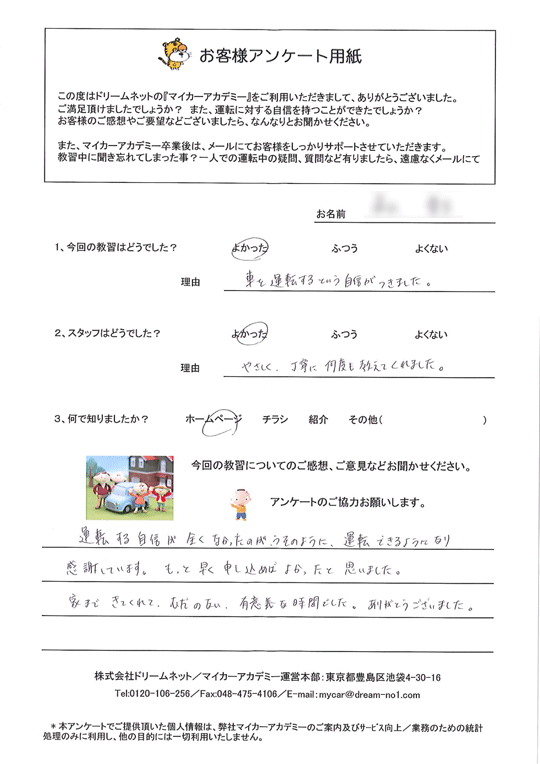 お客様アンケート用紙
この度はドリームネットの『マイカーアカデミー』をご利用いただきまして、ありがとうございました。
ご満足頂けましたでしょうか？ また、運転に対する自信を持つことができたでしょうか？
お客様のご感想やご要望などございましたら、なんなりとお聞かせください。
また、マイカーアカデミー卒業後は、メールにてお客様をしっかりサポートさせていただきます。
教習中に聞き忘れてしまった事？一人での運転中の疑問、質問など有りましたら、遠慮なくメールにて
お名前
1、今回の教習はどうでした？ よかった ふつう よくない
理由 車を運転するという自信がつきました。
2、スタッフはどうでした？ よかった ふつう よくない
理由 やさしく、丁寧に何度も教えてくれました。
3、何で知りましたか？ ホームページ チラシ 紹介 その他( )
今回の教習についてのご感想、ご意見などお聞かせください。
アンケートのご協力お願いします。
運転する自信が全くなかったのがうそのように、運転できるようになり
感謝しています。もっと早く申し込めばよかったと思いました。
家まできてくれて、むだのない、有意義な時間でした。ありがとうございました。
株式会社ドリームネット／マイカーアカデミー運営本部：東京都豊島区池袋4-30-16
Tel:0120-106-256／Fax:048-475-4106／E-mail:mycar@dream-no1.com
＊本アンケートでご提供頂いた個人情報は、弊社マイカーアカデミーのご案内及びサービス向上／業務のための統計
処理のみに利用し、他の目的には一切利用いたしません。